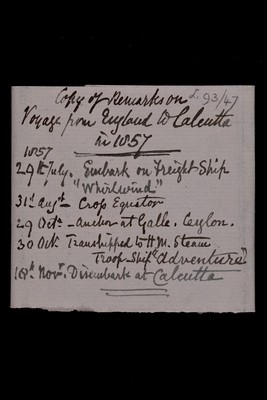 Copy of Remarks on
L. 93/47
Voyage from England to Calcutta
in 1857
1857
29th July. Embark on Freight Ship
"Whirlwind"
31st augt - Cross Equator
29 Octr - Anchor at Galle. Ceylon.
30 Oct Transhipped to H.M. Steam
Troop Ship "Adventure"
18th Novr. Disembark at Calcutta